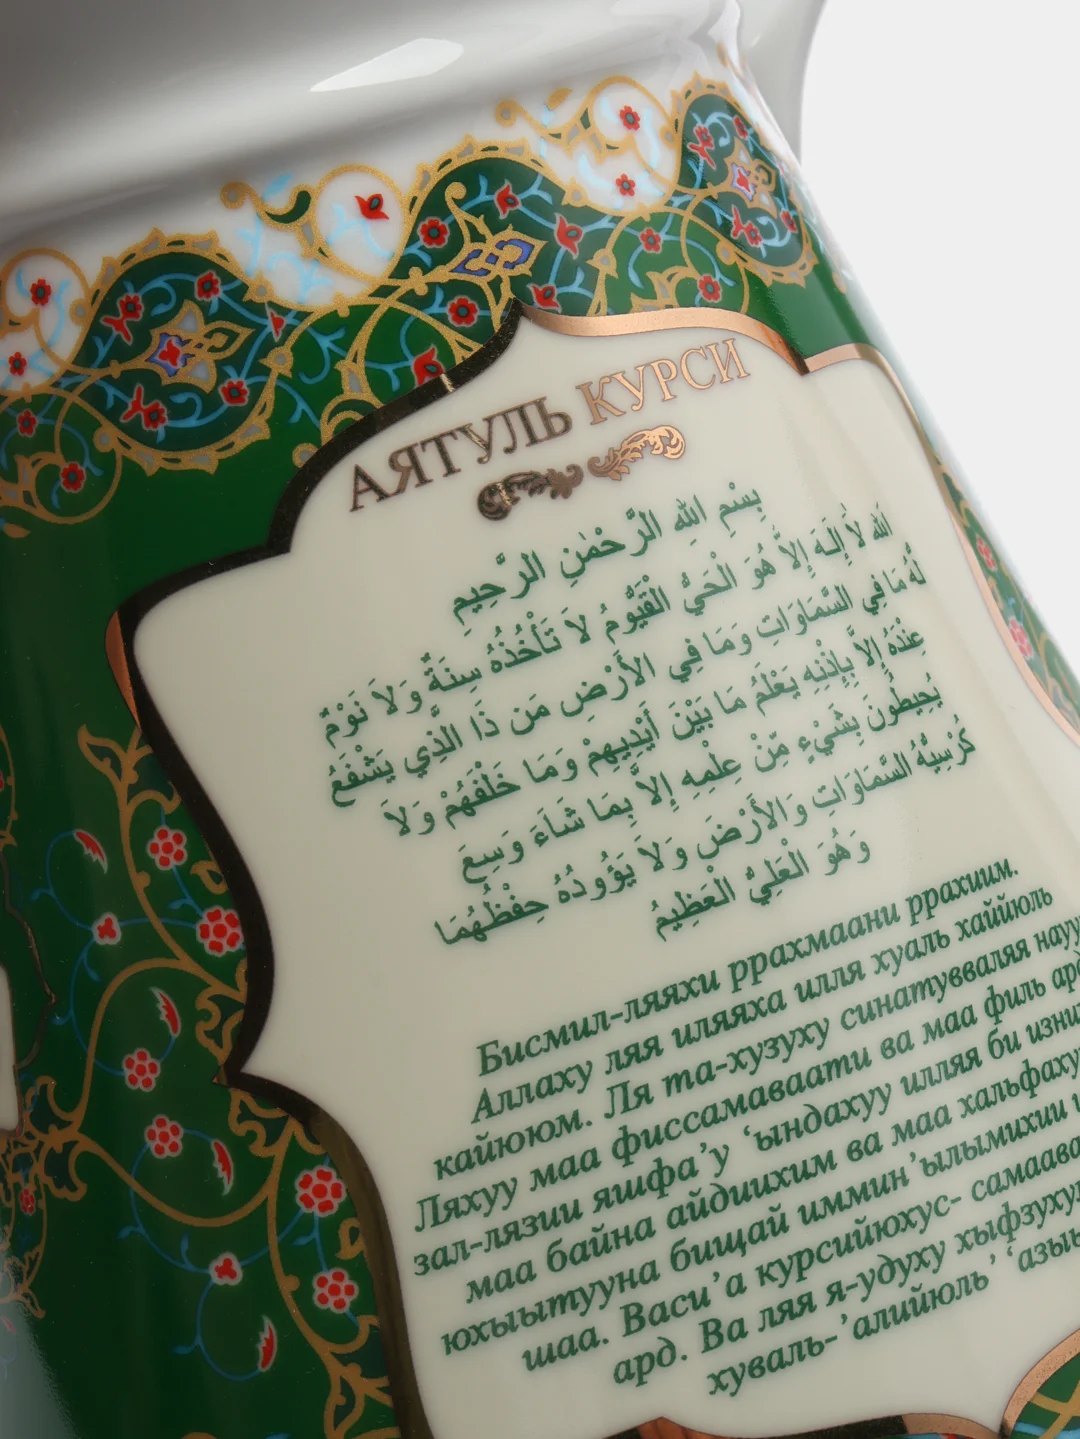 АЯТУЛЬ КУРСИ
بِسْمِ اللهِ الرَّحْمٰنِ الرَّحِيمِ
اَللهُ لاَ إِلَهَ إِلاَّ هُوَ الْحَيُّ الْقَيُّومُ لاَ تَأْخُذُهُ سِنَةٌ وَلاَ نَوْمٌ
لَّهُ مَا فِي السَّمَاوَاتِ وَمَا فِي الأَرْضِ مَن ذَا الَّذِي يَشْفَعُ
عِنْدَهُ إِلاَّ بِإِذْنِهِ يَعْلَمُ مَا بَيْنَ أَيْدِيهِمْ وَمَا خَلْفَهُمْ وَلاَ
يُحِيطُونَ بِشَيْءٍ مِّنْ عِلْمِهِ إِلاَّ بِمَا شَاءَ وَسِعَ
كُرْسِيُّهُ السَّمَاوَاتِ وَالأَرْضَ وَلاَ يَؤُودُهُ حِفْظُهُمَا
وَهُوَ الْعَلِيُّ الْعَظِيمُ
Бисмил-ляяхи ррахмаани ррахиим.
Аллаху ляя иляяха илля хуаль хаййюль
кайююм. Ля та-хузуху синатувваляя науу
Ляхуу маа фиссамаваати ва маа филь ард
зал-лязии яшфа’у ‘ындахуу илляя би изни
маа байна айдиихим ва маа хальфаху
юхыытууна бищай иммин’ылымихии
шаа. Васи’а курсийюхус- самаава
ард. Ва ляя я-удуху хыфзуху
хуваль-’алийюль’ ‘азы